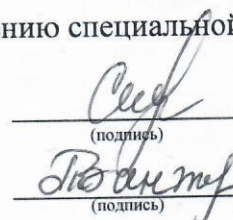 ению специальной
(подпись)
(подпись)